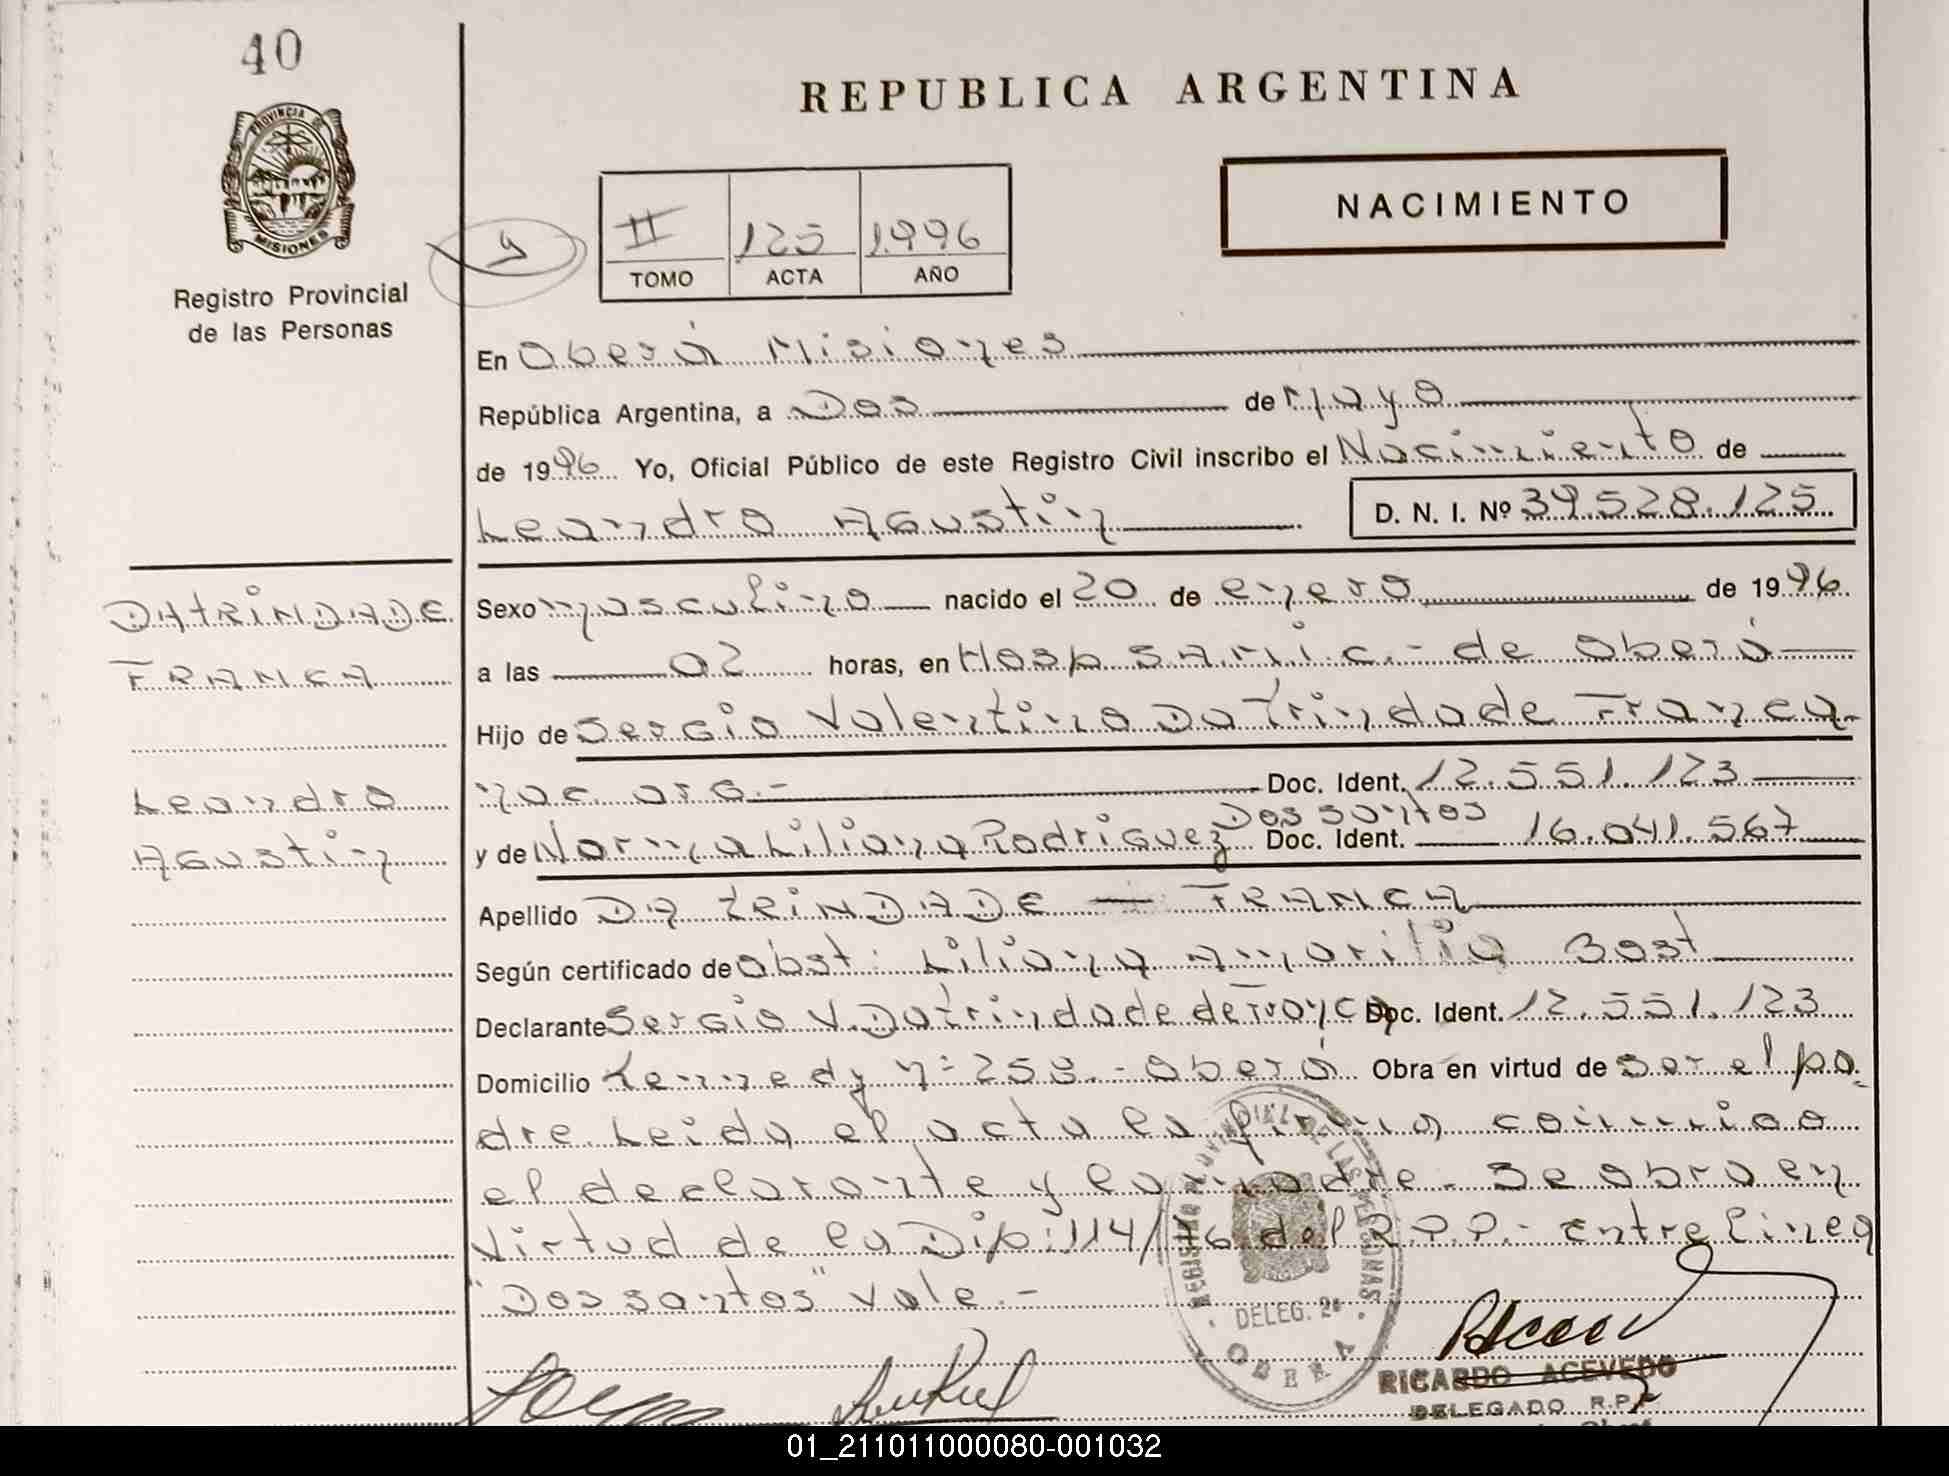 40
REPUBLICA ARGENTINA
PROVINCIA DE
MISIONES
NACIMIENTO
II 125 1996
TOMO ACTA AÑO
Registro Provincial
de las Personas
En Oberá Misiones
República Argentina, a Dos de Mayo
de 1996 Yo, Oficial Público de este Registro Civil inscribo el Nacimiento de
Leandro Agustin D. N. I. Nº 39.528.125
DATRINDADE
FRANCA
Leandro
Agustin
Sexo masculino nacido el 20 de enero de 1996.
a las 02 horas, en Hosp S.A.M.i.c.- de Oberá
Hijo de Sergio Valentino Da Trindade Franca-
nac. arg.- Doc. Ident. 12.551.123
Dos santos
y de Norma Liliana Rodriguez Doc. Ident. 16.041.567
Apellido DA TRINDADE - FRANCA
Según certificado de obst: Liliana Amarilia Bast
Declarante Sergio V. Datrindade de Franca Doc. Ident. 12.551.123
Domicilio Kennedy nº 258.- Oberá Obra en virtud de ser el pa-
dre. Leida el acta la firma conmigo
el declarante y la madre. Se obra en
virtud de la Dip: 114/76 del R.P.P.- Entre linea
"Dos santos" Vale.-
REGISTRO PROVINCIAL DE LAS PERSONAS
DELEG. 2
OBERA
RICARDO ACEVEDO
DELEGADO R.P.P
01_211011000080-001032